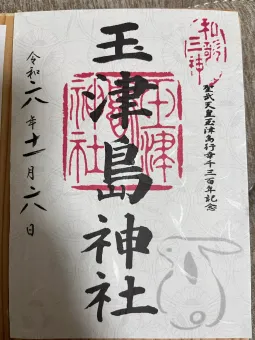 和歌三神
聖武天皇玉津島行幸千三百年記念
玉津島神社
玉津島神社
令和六年十一月六日